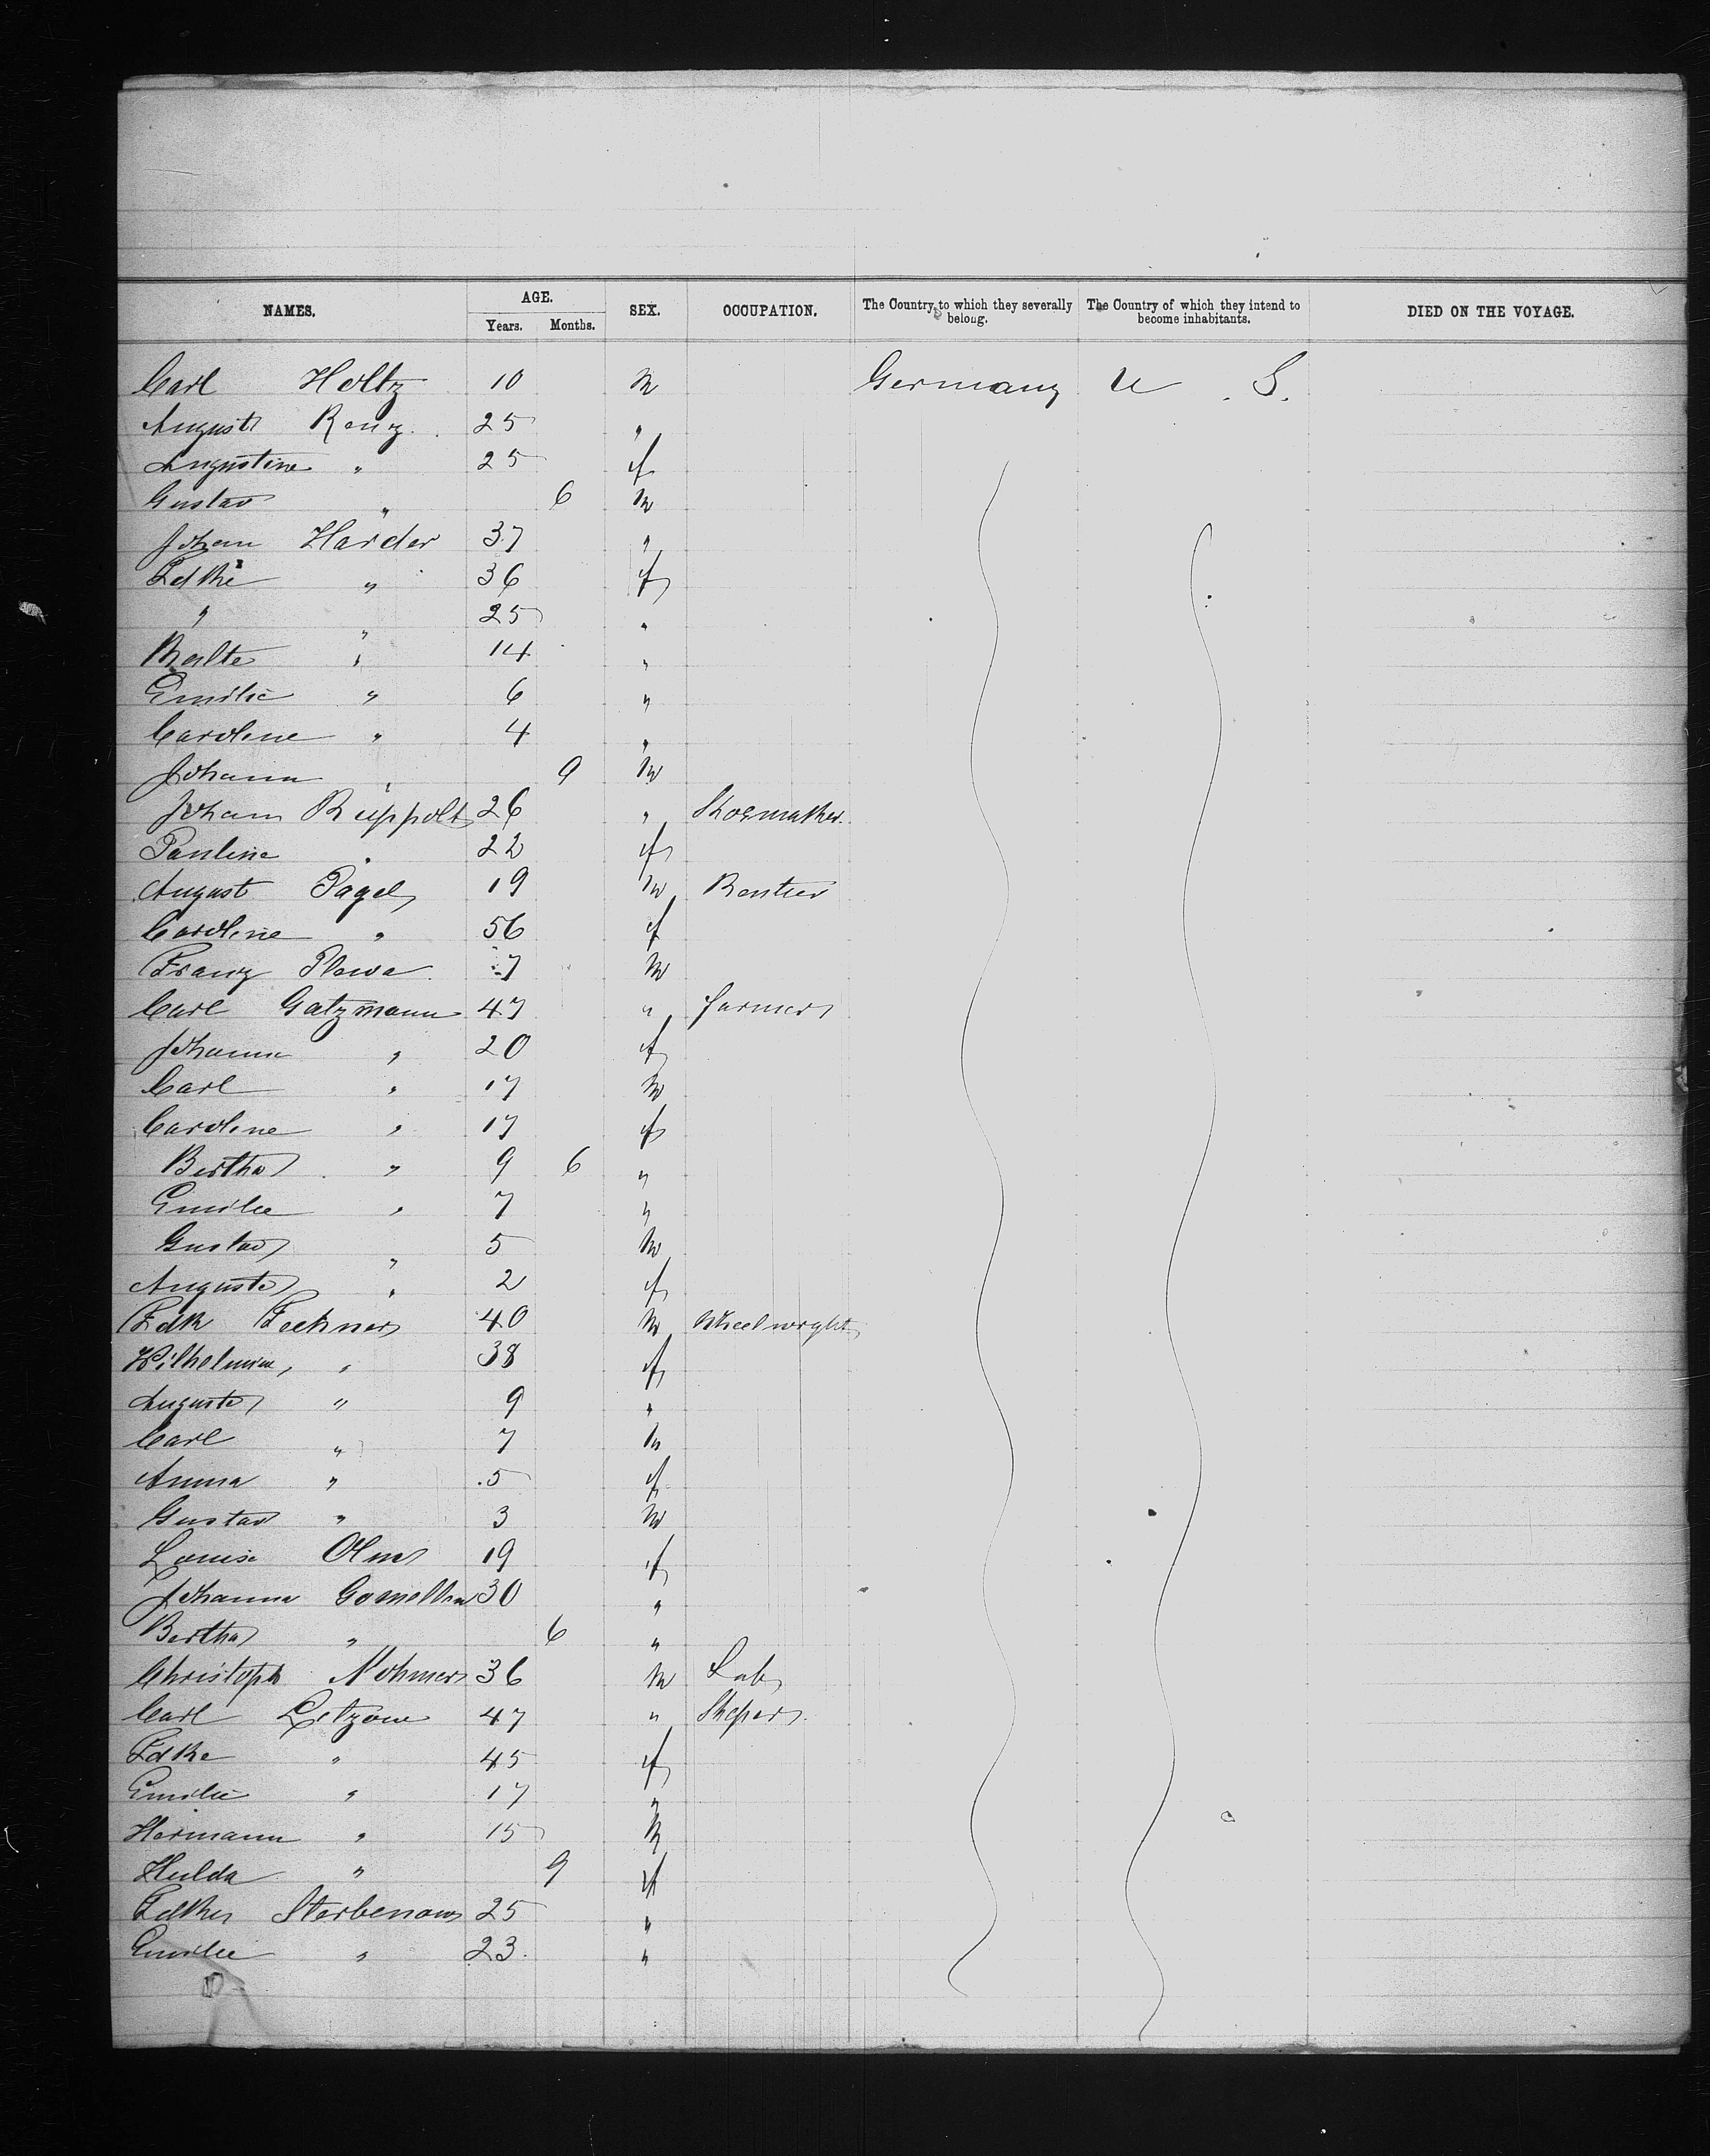 NAMES. AGE. SEX. OCCUPATION. The Country to which they severally belong. The Country of which they intend to become inhabitants. DIED ON THE VOYAGE.
Years. Months.
Carl Holtz 10 M Germany U. S.
August Renz 25 "
Augustine " 25 f
Gustav " 6 M
Johan Harder 37 "
Fdke " 36 f
" " 25 "
Malte " 14 "
Emilie " 6 "
Caroline " 4 "
Johann " 9 M
Johann Ruppolt 26 " Shoemaker
Pauline " 22 f
August Pagel 19 M Rentier
Caroline " 56 f
Franz Plewa 7 M
Carl Gatzmann 47 " farmer
Johanna " 20 f
Carl " 17 M
Caroline " 17 f
Bertha " 9 6 "
Emilie " 7 "
Gustav " 5 M
Auguste " 2 f
Fdk Fechner 40 M Wheelwright
Wilhelmine " 38 f
Auguste " 9 "
Carl " 7 M
Anna " 5 f
Gustav " 3 M
Louise Olm 19 f
Johanna 30 "
Bertha " 6 "
Christoph Nohmer 36 M Lab
Carl Letzow 47 " Sheper
Fdke " 45 f
Emilie " 17 "
Hermann " 15 M
Hulda " 9 f
Fdke Sterbenow 25 "
Emilie " 23 "